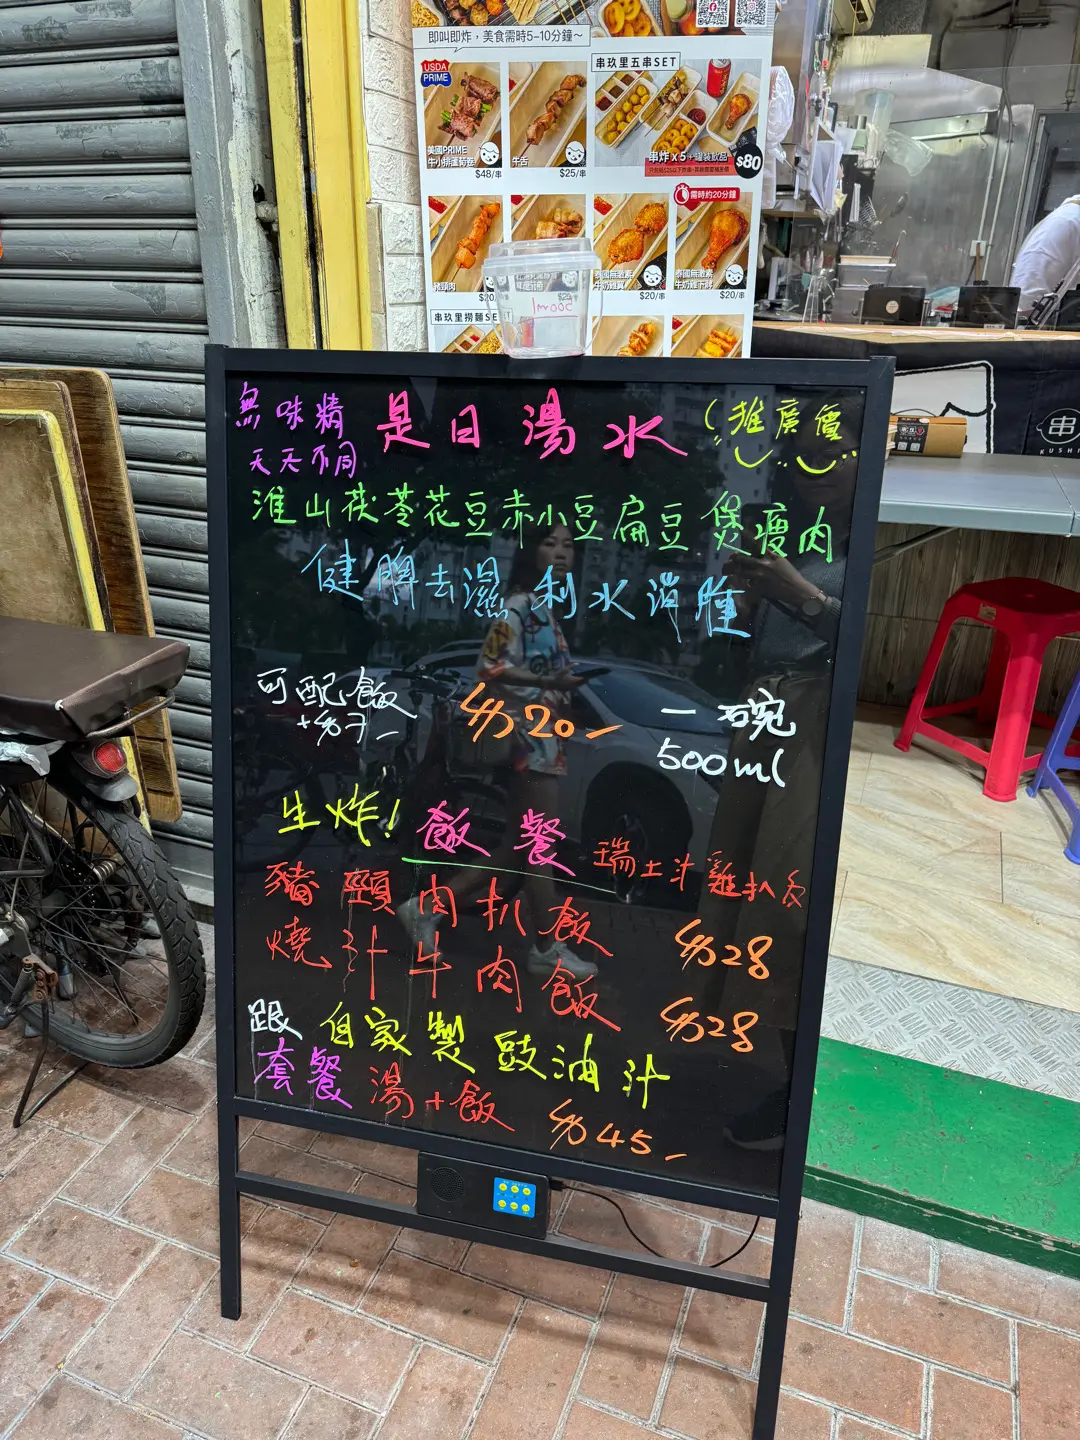 即叫即炸，美食需時5-10分鐘～
USDA PRIME
美國PRIME
牛小排蘆筍卷
$48/串
牛舌
$25/串
串玖里五串SET
串炸 x 5 + 罐裝飲品
$80
豬頸肉
$20
需時約20分鐘
泰國無激素
牛奶雞翼
$20/串
泰國無激素
牛奶雞下髀
$20/串
串玖里撈麵SET
1移00C
無味精
天天不同
是日湯水
(推廣價
淮山茯苓花豆赤小豆扁豆煲瘦肉
健脾去濕 利水消腫
可配飯
+$7-
$20-
一碗
500ml
生炸!
飯餐
瑞士汁雞扒
豬頸肉扒飯
$28
燒汁牛肉飯
$28
跟 自家製豉油汁
套餐 湯+飯 $45-
串
KUSHI